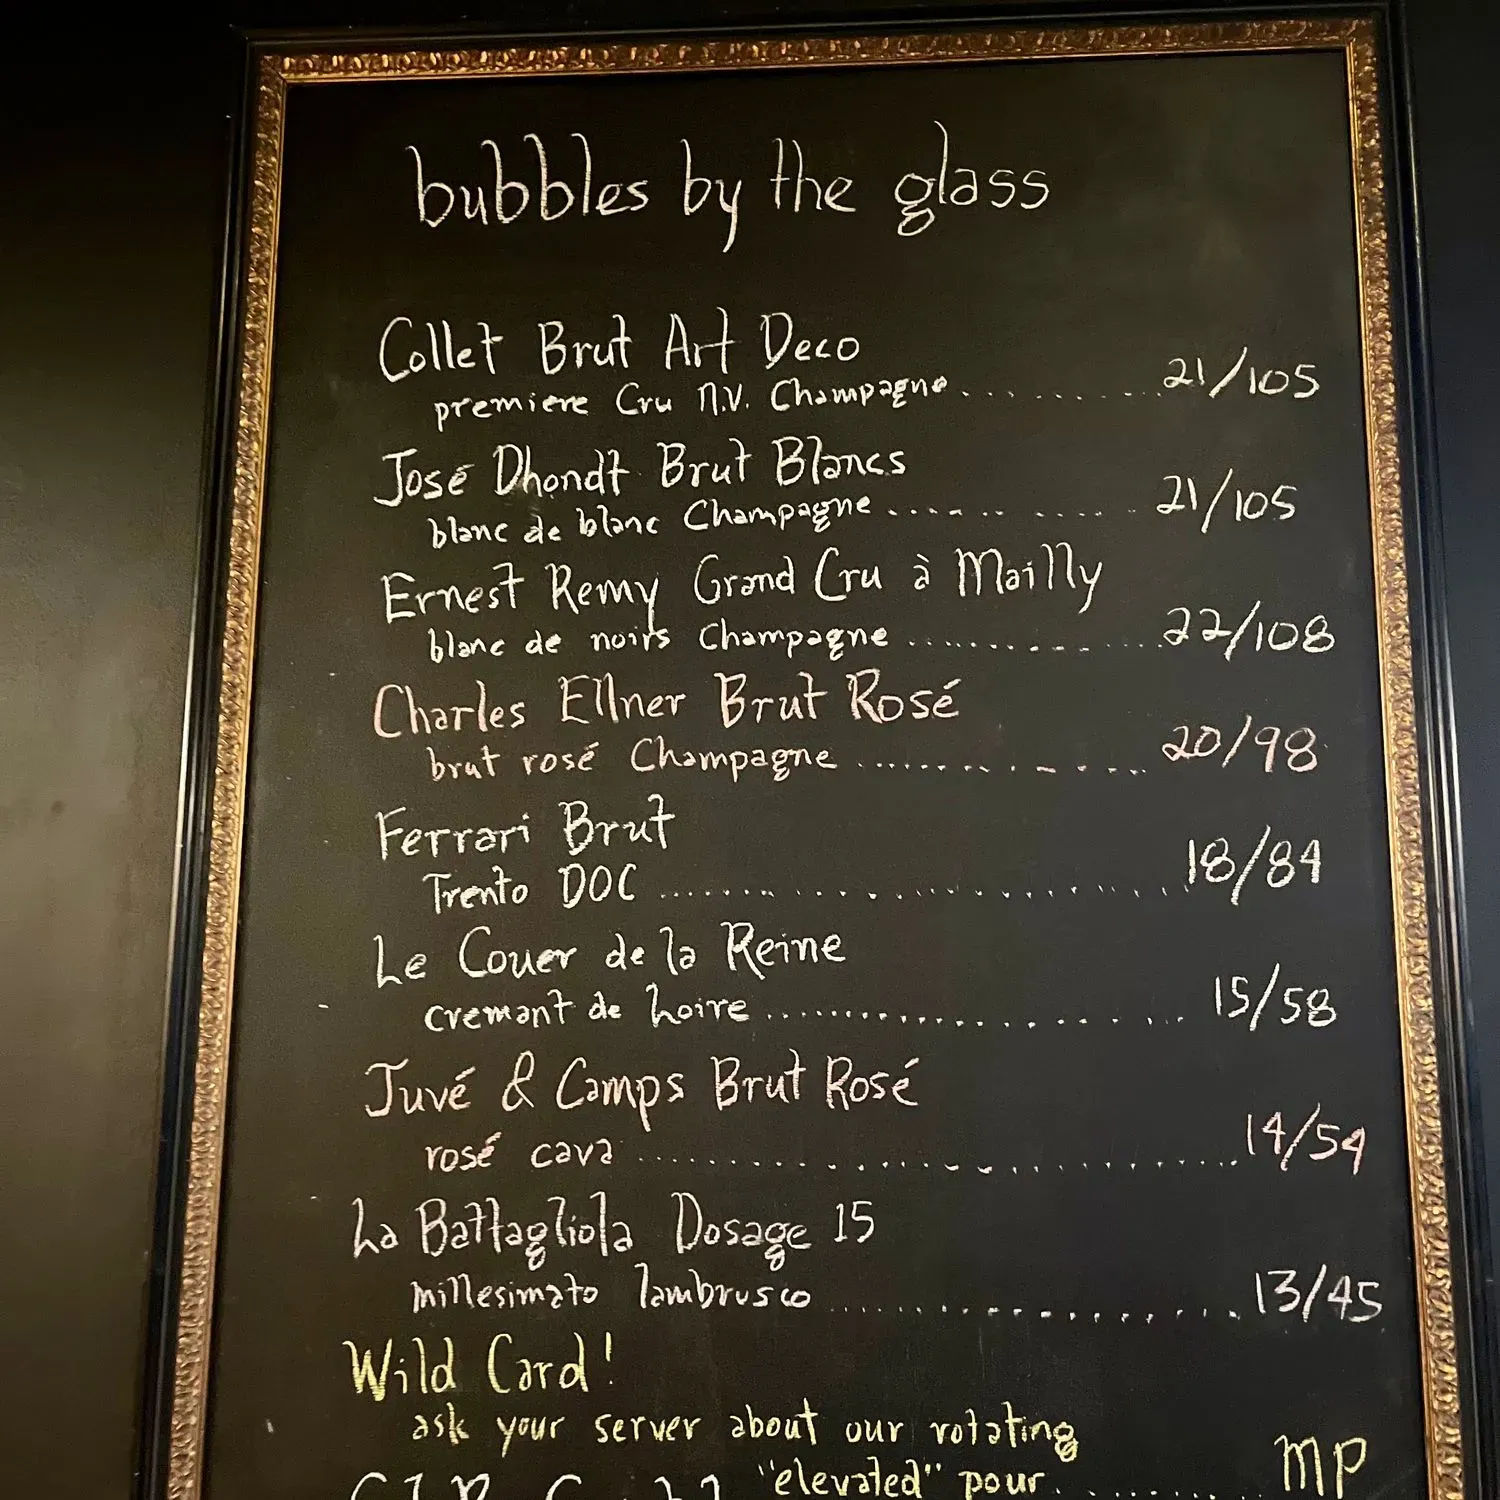 bubbles by the glass
Collet Brut Art Deco
premiere Cru N.V. Champagne.............21/105
José Dhondt Brut Blancs
blanc de blanc Champagne............21/105
Ernest Remy Grand Cru à Mailly
blanc de noirs Champagne..............22/108
Charles Ellner Brut Rosé
brut rosé Champagne.............20/98
Ferrari Brut
Trento DOC......................18/84
Le Couer de la Reine
cremant de Loire.....................15/58
Juvé & Camps Brut Rosé
rosé cava..........................14/54
La Battagliola Dosage 15
millesimato lambrusco..................13/45
Wild Card!
ask your server about our rotating
"elevated" pour...........MP